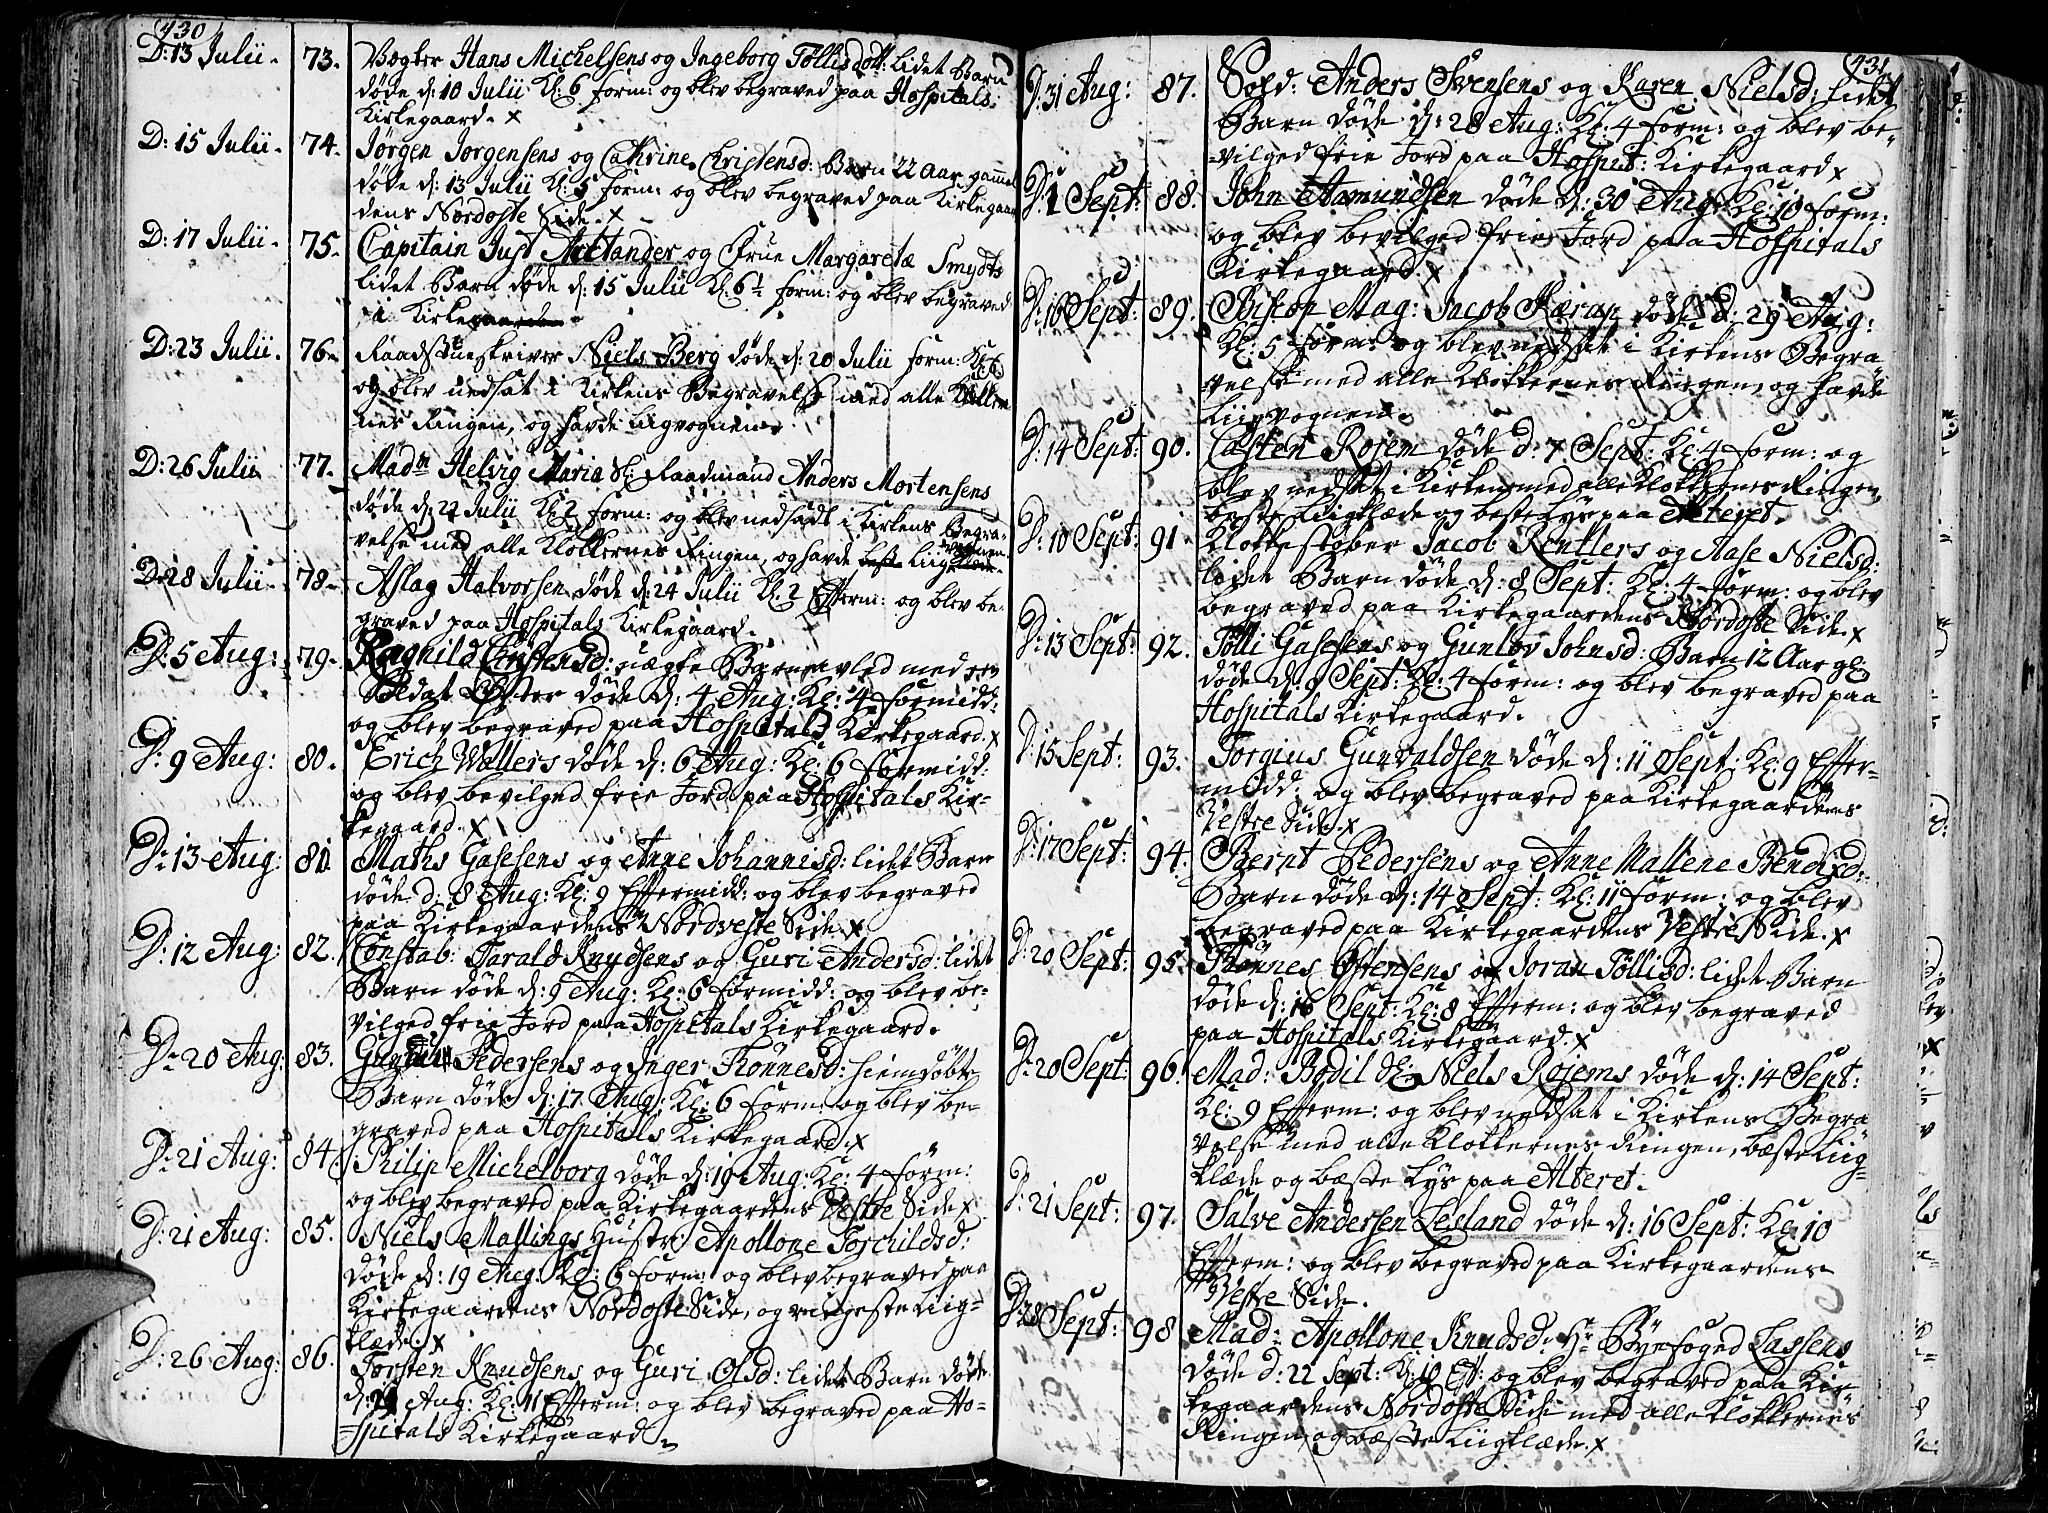 430
D: 13 Julii. 73. Vægter Hans Michelsens og Ingeborg Tøllisdott: lidet Barn
døde d: 10 Julii Kl: 6 form: og blev begraved paa Hospitals
Kirkegaard. x
D: 15 Julii. 74. Jørgen Jørgensens og Cathrine Christensd: Barn 22 Aar gammel
døde d: 13 Julii Kl: 5 form: og blev begraved paa Kirkegaar
dens Nordoste Side. x
D: 17 Julii. 75. Capitain Just Arctander og Frue Margaretæ Smydts
lidet Barn døde d: 15 Julii Kl: 6½ form: og blev begraved
i Kirkegaarden
D: 23 Julii. 76. Raadstueskriver Niels Berg døde d: 20 Julii form: Kl: 6
og blev nedsat i Kirkens Begravelse med alle Klokker
nes Ringen, og havde Liigvognen.
D: 26 Julii 77. Madm Helvig Maria Sl: Raadmand Anders Mortensens
døde d: 22 Julii Kl 2 form: og blev nedsadt i Kirkens Begra-
velse med alle Klokkernes Ringen, og havde beste Liigklæde vognen.
D: 28 Julii. 78. Aslag Halvorsen døde d: 24 Julii Kl. 2 Efterm: og blev be-
graved paa Hospitals Kirkegaard.
D: 5 Aug: 79. Ragnild Christensd: uægte Barn avled med en
Soldat døde d: 4 Aug: Kl: 4 formidd:
og blev begraved paa Hospitals Kirkegaard. x
D: 9 Aug: 80. Erich Wallers døde d: 6 Aug: Kl: 6 formidd:
og blev bevilged frie Jord paa Hospitals Kir-
kegaard. x
D: 13 Aug: 81. Maths Gasesens og Anne Johannisd: lidet Barn
døde d: 8 Aug: Kl: 9 Eftermidd: og blev begraved
paa Kirkegaardens Nordveste Side. x
D: 12 Aug: 82. Constab: Tarald Knudsens og Guri Andersd: lidet
Barn døde d: 9 Aug: Kl: 6 formidd: og blev be-
vilged frie Jord paa Hospitals Kirkegaard.
D: 20 Aug: 83. Pedersens og Inger Tønnesd: hiemdøbte
Barn døde d: 17 Aug: Kl: 6 form: og blev be-
graved paa Hospitals Kirkegaard. x
D: 21 Aug: 84. Philip Michelborg døde d: 19 Aug: Kl: 4 form:
og blev begraved paa Kirkegaardens Vestre Side x
D: 21 Aug: 85. Niels Mallings Hustr: Apollone Torchildsd:
døde d: 19 Aug: Kl: 6 form: og blev begraved paa
Kirkegaardens Nordoste Side, og ringeste Liig-
klæde. x
D: 26 Aug: 86. Torsten Knudsens og Guri Olsd: lidet Barn døde
d: Aug: Kl: 11 Efterm: og blev begraved paa Ho-
spitals Kirkegaard.
431
D: 31 Aug: 87. Sold: Anders Svensens og Karen Nielsd: lidet
Barn døde d: 28 Aug: Kl: 4 form: og blev be-
vilged frie Jord paa Hospit: Kirkegaard x
D: 1 Sept: 88. John Aamundsen døde d: 30 Aug: Kl: 10 form:
og blev bevilged frie Jord paa Hospitals
Kirkegaard. x
D: 16 Sept: 89. Biscop Mag: Jacob Kærup døde d: 29 Aug:
Kl: 5 form: og blev nedsat i Kirkens Begra
velse med alle Klokkernes Ringen, og havde
Liigvognen.
D: 14 Sept: 90. Casten Rojem døde d: 7 Sept: Kl: 4 form: og
blev nedsat i Kirken med alle Klokkernes Ringen,
beste Liigklæde og beste Lys paa Alteret.
D: 10 Sept: 91 Klokkestøber Jacob Rentlers og Aase Nielsd:
lidet Barn døde d: 8 Sept: Kl: 4 form: og blev
begraved paa Kirkegaardens Nordoste Side. x
D: 13 Sept: 92. Tølli Gasesens og Gunlov Johnsd: Barn 12 Aar gl:
døde d: 9 Sept: Kl: 4 form: og blev begraved paa
Hospitals Kirkegaard.
D: 15 Sept: 93. Torgius Gunvaldsen døde d: 11 Sept: Kl: 9 Efter-
midd: og blev begraved paa Kirkegaardens
Vestre Side. x
D: 17 Sept: 94. Bernt Pedersens og Anne Mallene Bendixd:
Barn døde d: 14 Sept: Kl: 11 form: og blev
begraved paa Kirkegaardens Vestre Side. x
D: 20 Sept: 95. Tønnes Ostensens og Joran Tøllisd: lidet Barn
døde d: 16 Sept: Kl: 8 Efterm: og blev begraved
paa Hospitals Kirkegaard. x
D: 20 Sept: 96. Mad: Bodil Sl: Niels Rojems døde d: 14 Sept:
Kl: 9 Efterm: og blev nedsat i Kirkens Begra
velse med alle Klokkernes Ringen, bæste Liig-
klæde og bæste Lys paa Alteret.
D: 21 Sept: 97. Salve Andersen Lesland døde d: 16 Sept: Kl: 10
Efterm: og blev begraved paa Kirkegaardens
Vestre Side.
D: 28 Sept: 98 Mad: Apollone Knudsd: Hr Byefoged Lassens
døde d: 22 Sept: Kl: 10 Eft: og blev begraved paa Kir-
kegaardens Nordoste Side med alle Klokkernes
Ringen, og bæste Liigklæde. x